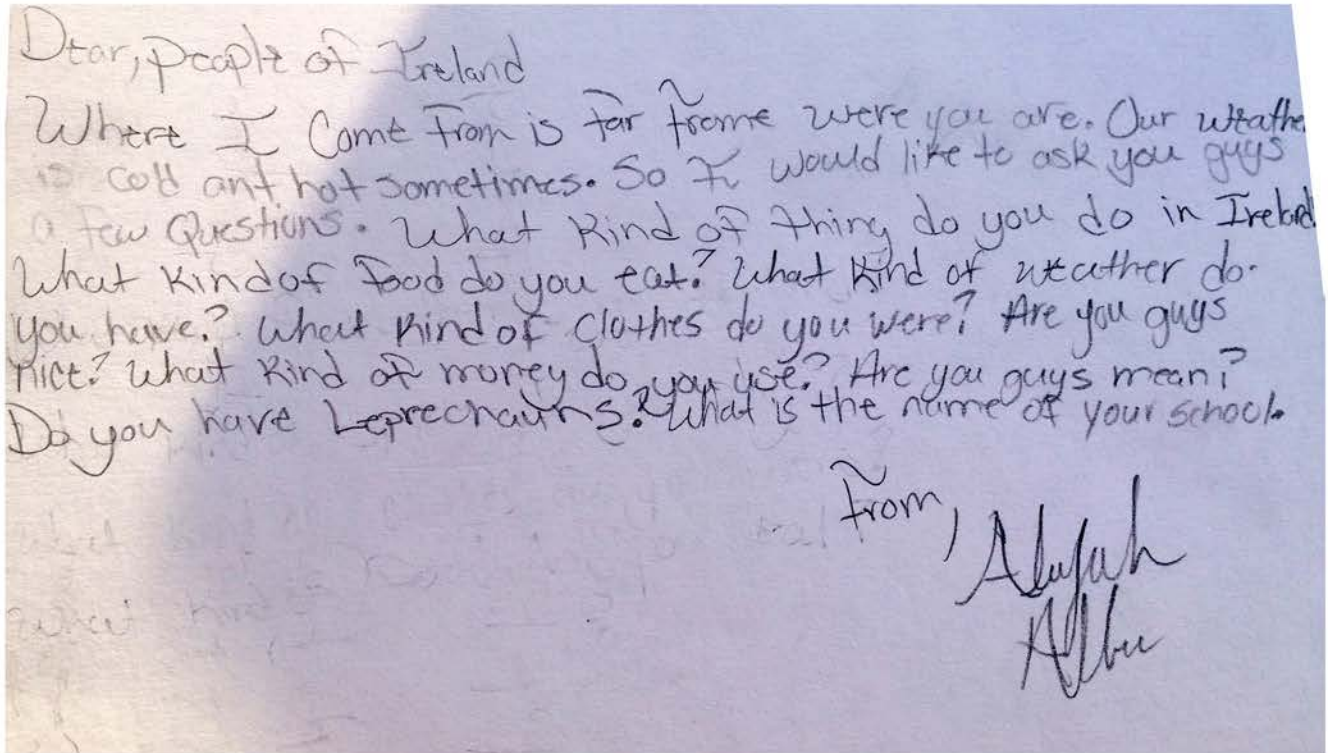 Dear, people of Ireland
Where I Come From is far frome were you are. Our weathe
is cold ant hot sometimes. So I would like to ask you guys
a few Questions. What Kind of thing do you do in Ireland.
What Kind of Food do you eat? What Kind of weather do
you have? What Kind of Clothes do you were? Are you guys
nice? What Kind of money do you use? Are you guys mean?
Do you have Leprechauns? What is the name of your school.
From,